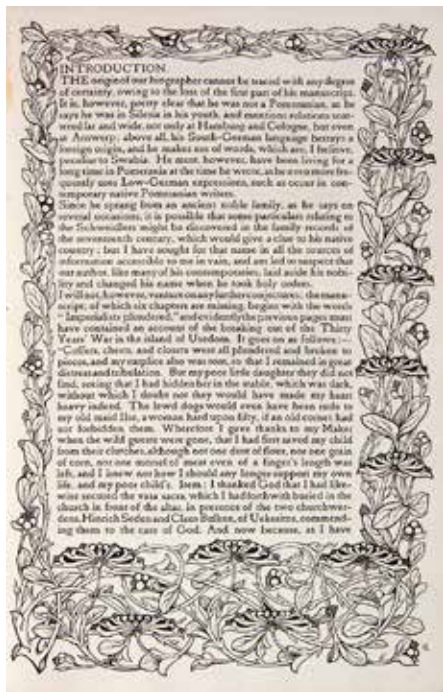 INTRODUCTION.
THE origin of our biographer cannot be traced with any degree
of certainty, owing to the loss of the first part of his manuscript.
It is, however, pretty clear that he was not a Pomeranian, as he
says he was in Silesia in his youth, and mentions relations scat-
tered far and wide, not only at Hamburg and Cologne, but even
at Antwerp; above all, his South-German language betrays a
foreign origin, and he makes use of words, which are, I believe,
peculiar to Swabia. He must, however, have been living for a
long time in Pomerania at the time he wrote, as he even more fre-
quently uses Low-German expressions, such as occur in con-
temporary native Pomeranian writers.
Since he sprang from an ancient noble family, as he says on
several occasions, it is possible that some particulars relating to
the Schweidlers might be discovered in the family records of
the seventeenth century, which would give a clue to his native
country; but I have sought for that name in all the sources of
information accessible to me in vain, and am led to suspect that
our author, like many of his contemporaries, laid aside his nobi-
lity and changed his name when he took holy orders.
I will not, however, venture on any further conjectures; the manu-
script, of which six chapters are missing, begins with the words
"Imperialists plundered," and evidently the previous pages must
have contained an account of the breaking out of the Thirty
Years' War in the island of Usedom. It goes on as follows:—
"Coffers, chests, and closets were all plundered and broken to
pieces, and my surplice also was torn, so that I remained in great
distress and tribulation. But my poor little daughter they did not
find, seeing that I had hidden her in the stable, which was dark,
without which I doubt not they would have made my heart
heavy indeed. The lewd dogs would even have been rude to
my old maid Ilse, a woman hard upon fifty, if an old cornet had
not forbidden them. Wherefore I gave thanks to my Maker
when the wild guests were gone, that I had first saved my child
from their clutches, although not one dust of flour, nor one grain
of corn, nor one morsel of meat even of a finger's length was
left, and I knew not how I should any longer support my own
life, and my poor child's. Item: I thanked God that I had like-
wise secured the vasa sacra, which I had forthwith buried in the
church in front of the altar, in presence of the two churchwar-
dens, Hinrich Seden and Claus Bulken, of Uekeritze, commend-
ing them to the care of God. And now because, as I have